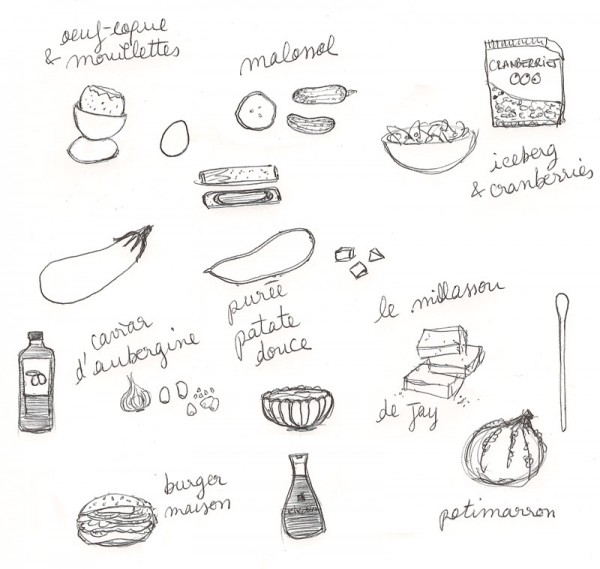 oeuf-coque
& mouillettes
malossol
CRANBERRIES
iceberg
& cranberries
caviar
d'aubergine
purée
patate
douce
le millassou
de Jay
potimarron
burger
maison